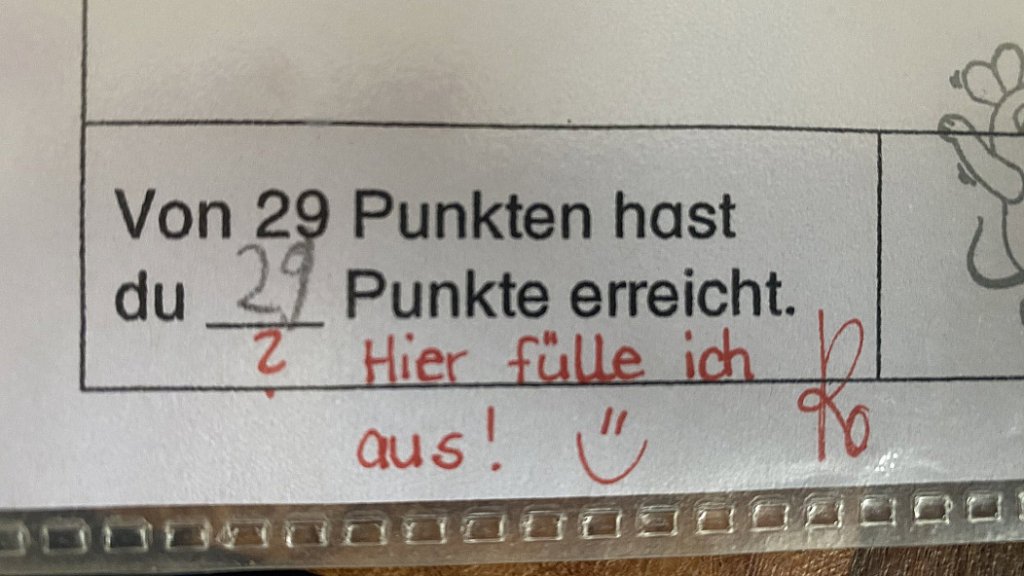 Von 29 Punkten hast
du 29 Punkte erreicht.
? Hier fülle ich
aus!